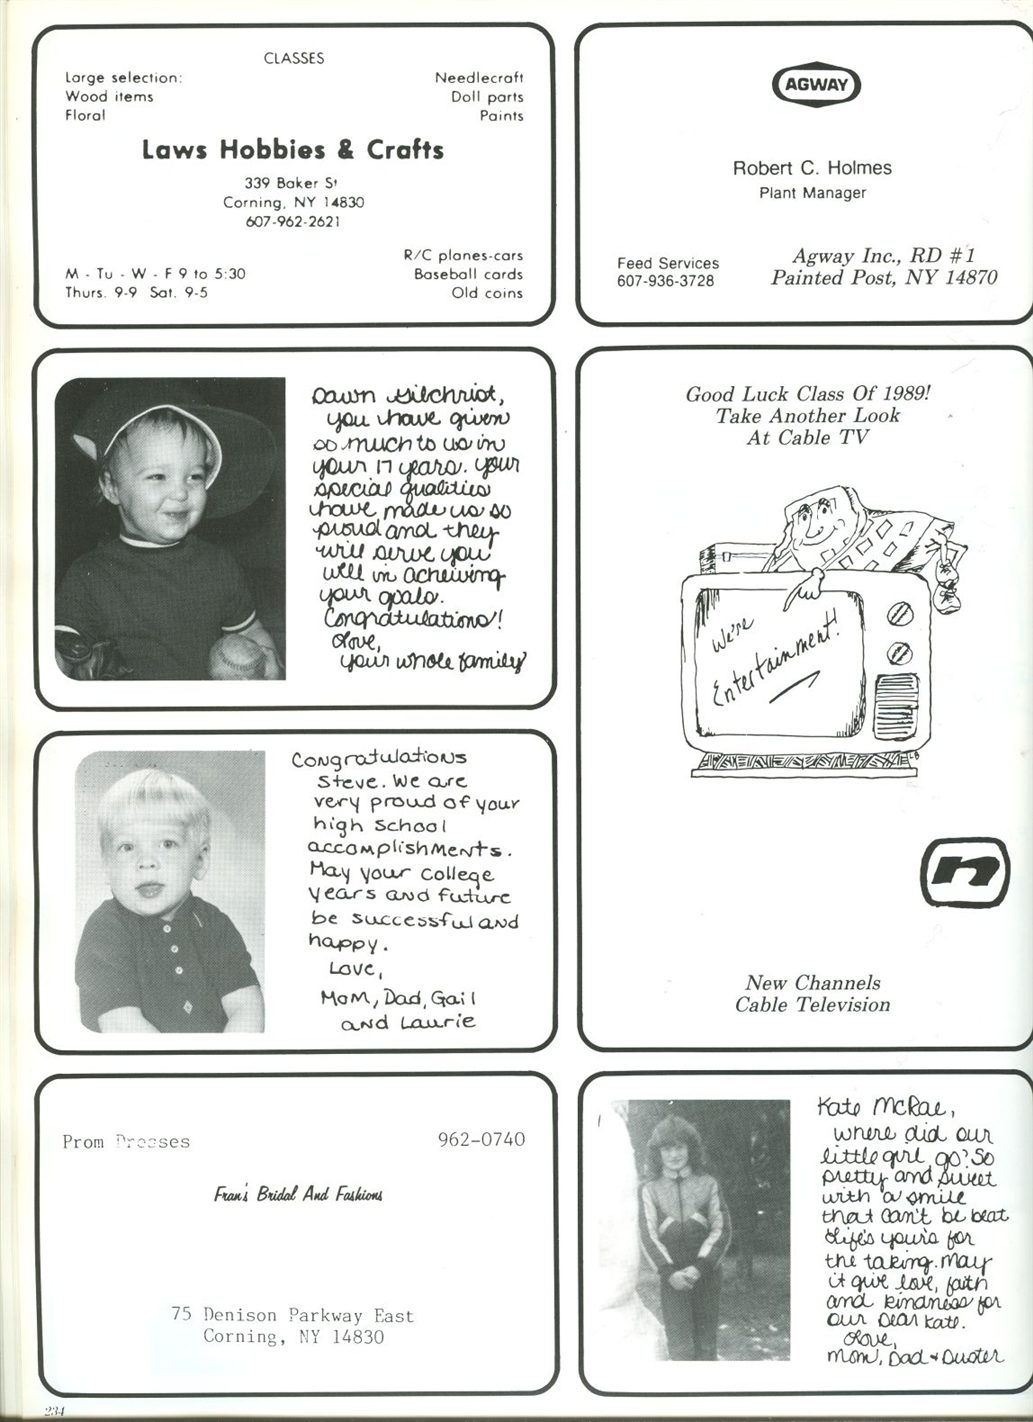 CLASSES
Large selection:
Wood items
Floral
Needlecraft
Doll parts
Paints
Laws Hobbies & Crafts
339 Baker St
Corning, NY 14830
607-962-2621
M - Tu - W - F 9 to 5:30
Thurs. 9-9 Sat. 9-5
R/C planes-cars
Baseball cards
Old coins
AGWAY
Robert C. Holmes
Plant Manager
Feed Services
607-936-3728
Agway Inc., RD #1
Painted Post, NY 14870
Dawn Gilchrist,
you have given
so much to us in
your 17 years. your
special qualities
have made us so
proud and they
will serve you
well in acheiving
your goals.
Congratulations!
Love,
your whole family
Good Luck Class Of 1989!
Take Another Look
At Cable TV
We're
Entertainment!
LB
n
New Channels
Cable Television
Congratulations
Steve. We are
very proud of your
high school
accomplishments.
May your college
years and future
be successful and
happy.
Love,
Mom, Dad, Gail
and Laurie
Prom Dresses
962-0740
Fran's Bridal And Fashions
75 Denison Parkway East
Corning, NY 14830
Kate McRae,
where did our
little girl go? So
pretty and sweet
with a smile
that can't be beat
Life's your's for
the taking. May
it give love, faith
and kindness for
our Dear Kate.
Love,
Mom, Dad + Duster
234